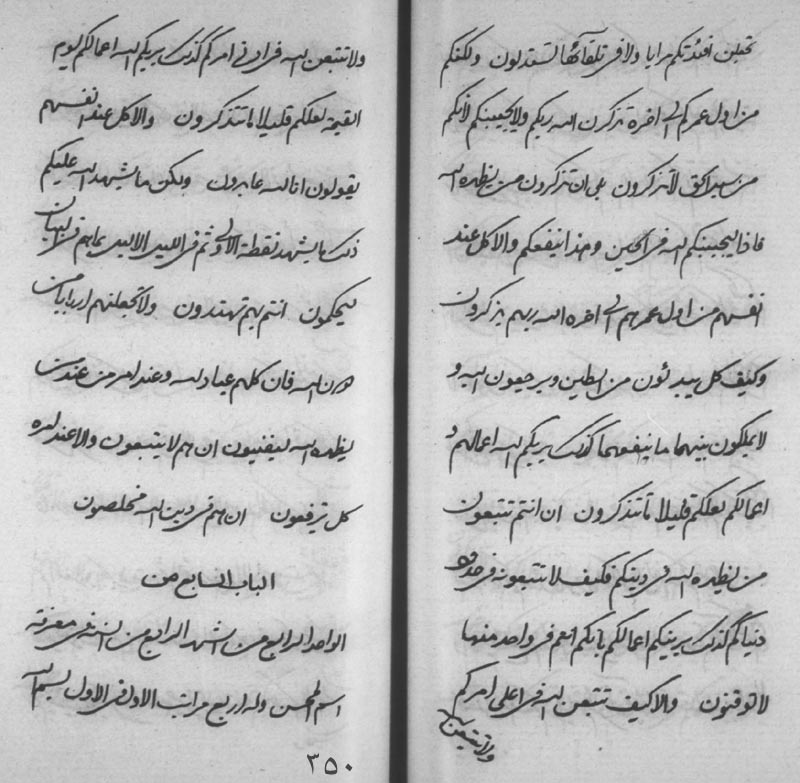 تجعلن افئدتكم مرايا ولا في تلقائها لتستدلون ولكنكم
من اول عمركم الى اخره تذكرن الله ربكم ولا يجيبنكم لانكم
من مبدء الحق لا تذكرون بلى ان تذكرون من يظهره الله
فاذا يجيبنكم الله في الحين وهذا ينفعكم والا كل عند
انفسهم من اول عمرهم الى اخره الله ربهم يذكرون
وكيف كل يبدئون من الطين ويرجعون اليه و
لا يملكون بينهما ما ينفعهما كذلك يريكم الله اعمالهم و
اعمالكم لعلكم قليلا ما تتذكرون ان انتم تتبعون
من يظهره الله في دينكم فكيف لا تتبعونه في حدود
دنياكم كذلك يرينكم اعمالكم بانكم انتم في واحد منها
لا توقنون والا كيف تتبعن الله في اعلى امركم
ولا تتبعن
ولا تتبعن الله في ادنى امركم كذلك يريكم الله اعمالكم ليوم
القيمة لعلكم قليلا ما تتذكرون والا كل عند انفسهم
يقولون انا لله عابدون ولكن ما يشهد الله عليكم
ذلك ما يشهد نقطة الاولى ثم في الليل الاليل بما هم في البيان
ليحكمون انتم بهم تهتدون ولا تجعلنهم اربابا من
دون الله فان كلهم عباد له وعند امر من عند من
يظهره الله ليفنيون ان هم لا يتبعون والا عند الله
كل ترفعون ان هم في دين الله مخلصون
الباب السابع من
الواحد الرابع من الشهر الرابع من السنة في معرفة
اسم المحسن وله اربع مراتب الاول في الاول بسم الله
٣٥٠